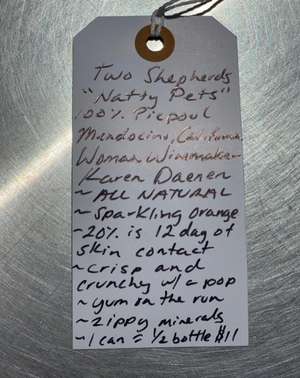 Two Shepherds
"Natty Pets"
100% Picpoul
Mendocino, California
Woman Winemaker
Karen Daenen
~ ALL NATURAL
~ Sparkling Orange
~20% is 12 day of
skin contact
~ crisp and
crunchy w/ a pop
~ yum in the run
~ zippy minerals
~ 1 can = 1/2 bottle $11